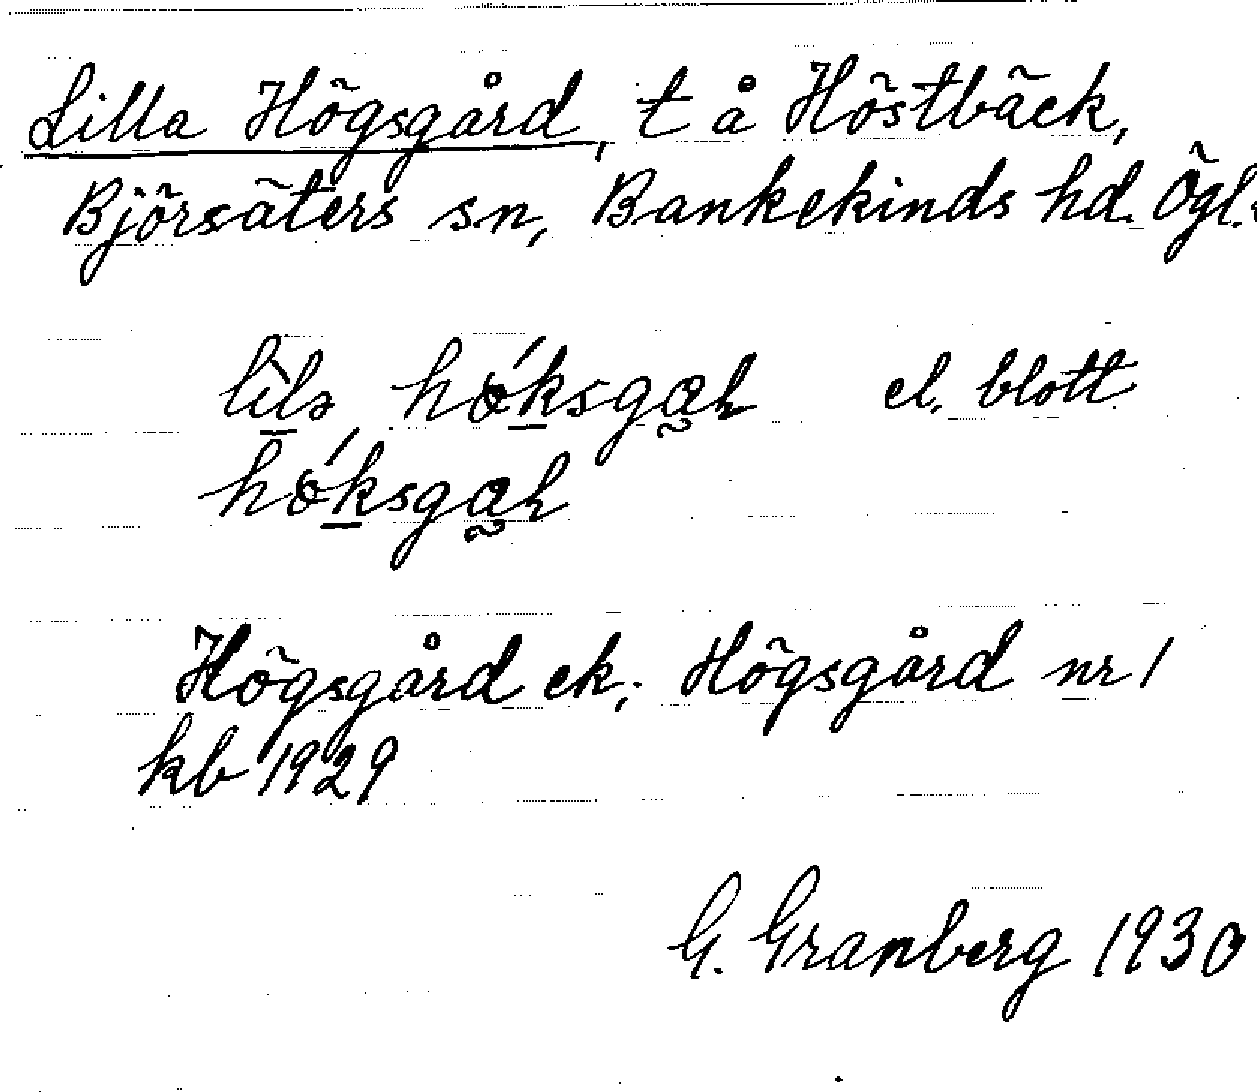 Lilla Högsgård, t å Höstbäck,
Björsäters sn, Bankekinds hd. Ögl.
el. blott
Högsgård ek; Högsgård nr 1
kb 1929
G. Granberg 1930